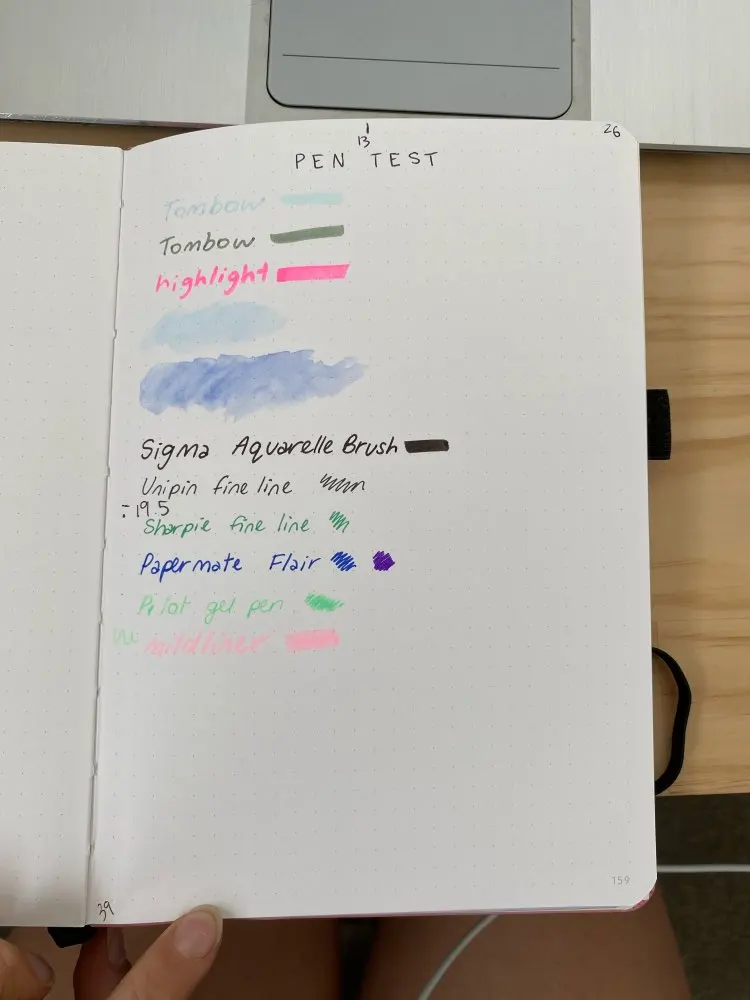 26
13
PEN TEST
Tombow
Tombow
highlight
Sigma Aquarelle Brush
Unipin fine line
19.5
Sharpie fine line
Papermate Flair
Pilot gel pen
mildliner
159
39